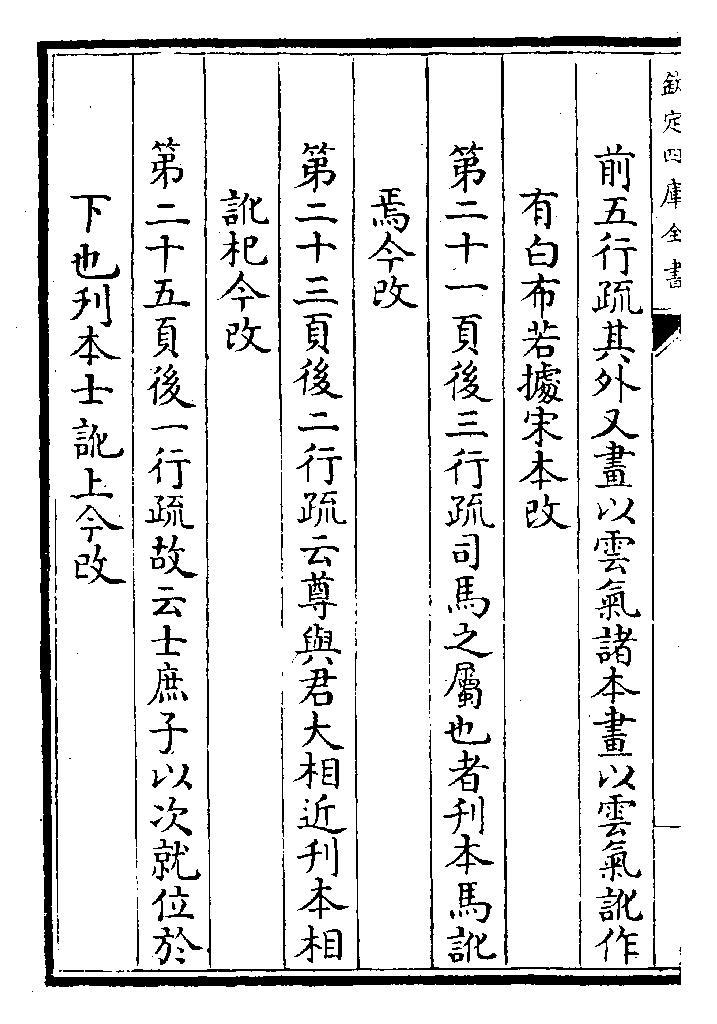 欽定四庫全書
前五行疏其外又畫以雲氣諸本畫以雲氣訛作
有白布若據宋本改
第二十一頁後三行疏司馬之屬也者刋本馬訛
焉今改
第二十三頁後二行疏云尊與君大相近刋本相
訛杞今改
第二十五頁後一行疏故云士庶子以次就位於
下也刋本士訛上今改